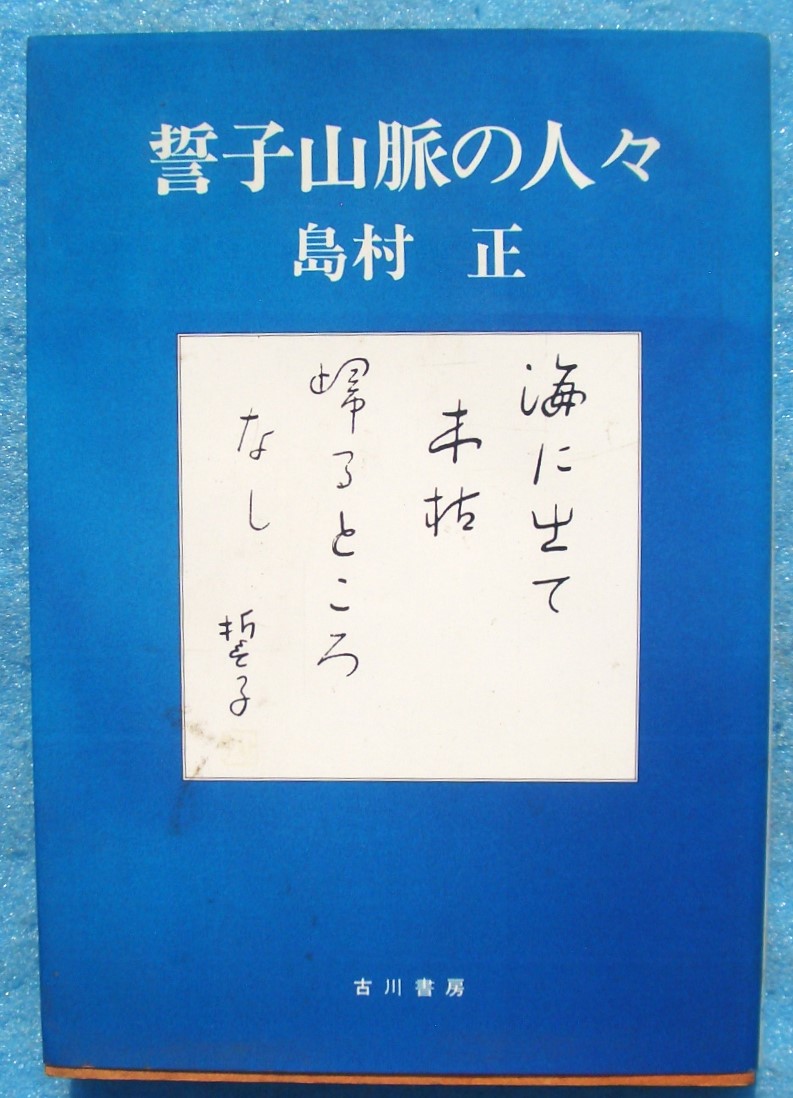 誓子山脈の人々
島村 正
海に出て
木枯
帰るところ
なし 誓子
古川書房